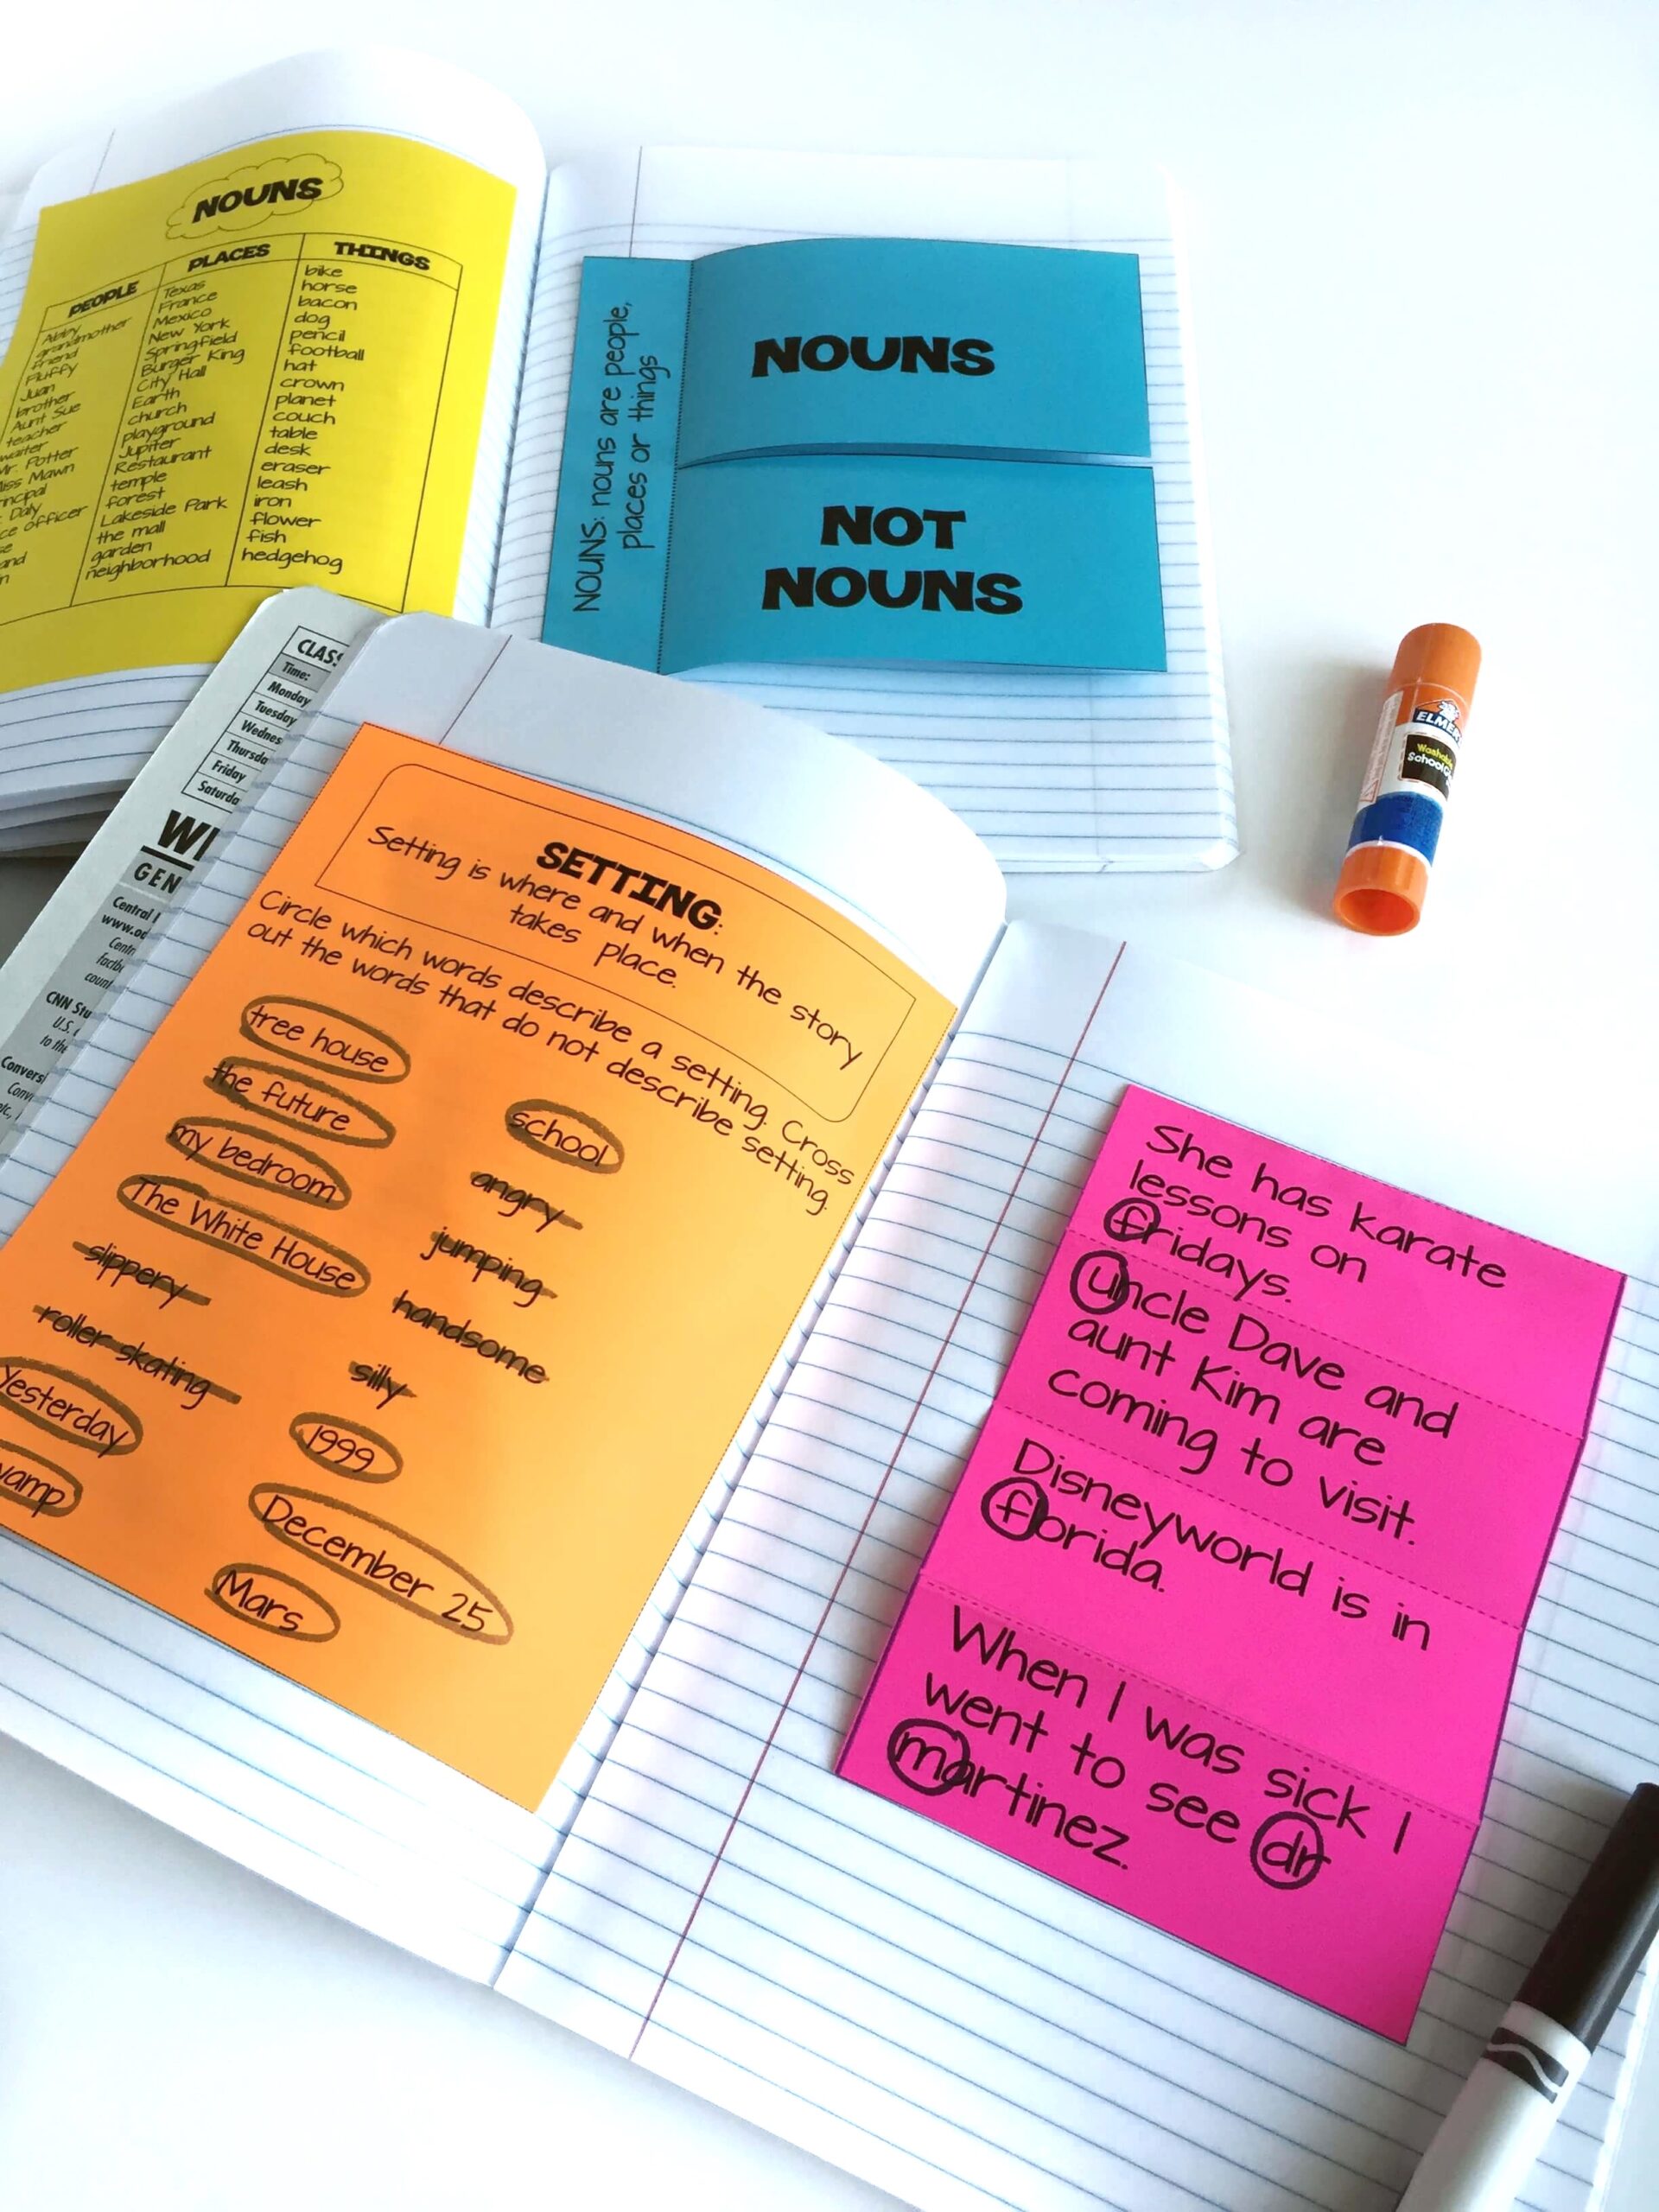 NOUNS
PEOPLE
Abby
grandmother
friend
Fluffy
Juan
brother
Aunt Sue
teacher
waiter
Mr. Potter
Miss Mawn
Daly
officer
PLACES
Texas
France
Mexico
New York
Springfield
Burger King
City Hall
Earth
church
playground
Jupiter
Restaurant
temple
forest
Lakeside Park
the mall
garden
neighborhood
THINGS
bike
horse
bacon
dog
pencil
football
hat
crown
planet
couch
table
desk
eraser
leash
iron
flower
fish
hedgehog
NOUNS: nouns are people,
places or things
NOUNS
NOT
NOUNS
ELMER'S
Washable
School
Time:
Monday
Tuesday
Wednes
Thursda
Friday
Saturda
GEN
Central
CNN
U.S.
to the
SETTING:
Setting is where and when the story
takes place.
Circle which words describe a setting. Cross
out the words that do not describe setting.
tree house
the future
my bedroom
The White House
slippery
roller skating
Yesterday
school
angry
jumping
handsome
silly
1999
December 25
Mars
She has karate
lessons on
fridays.
uncle Dave and
aunt Kim are
coming to visit.
Disneyworld is in
florida.
When I was sick I
went to see dr
martinez.